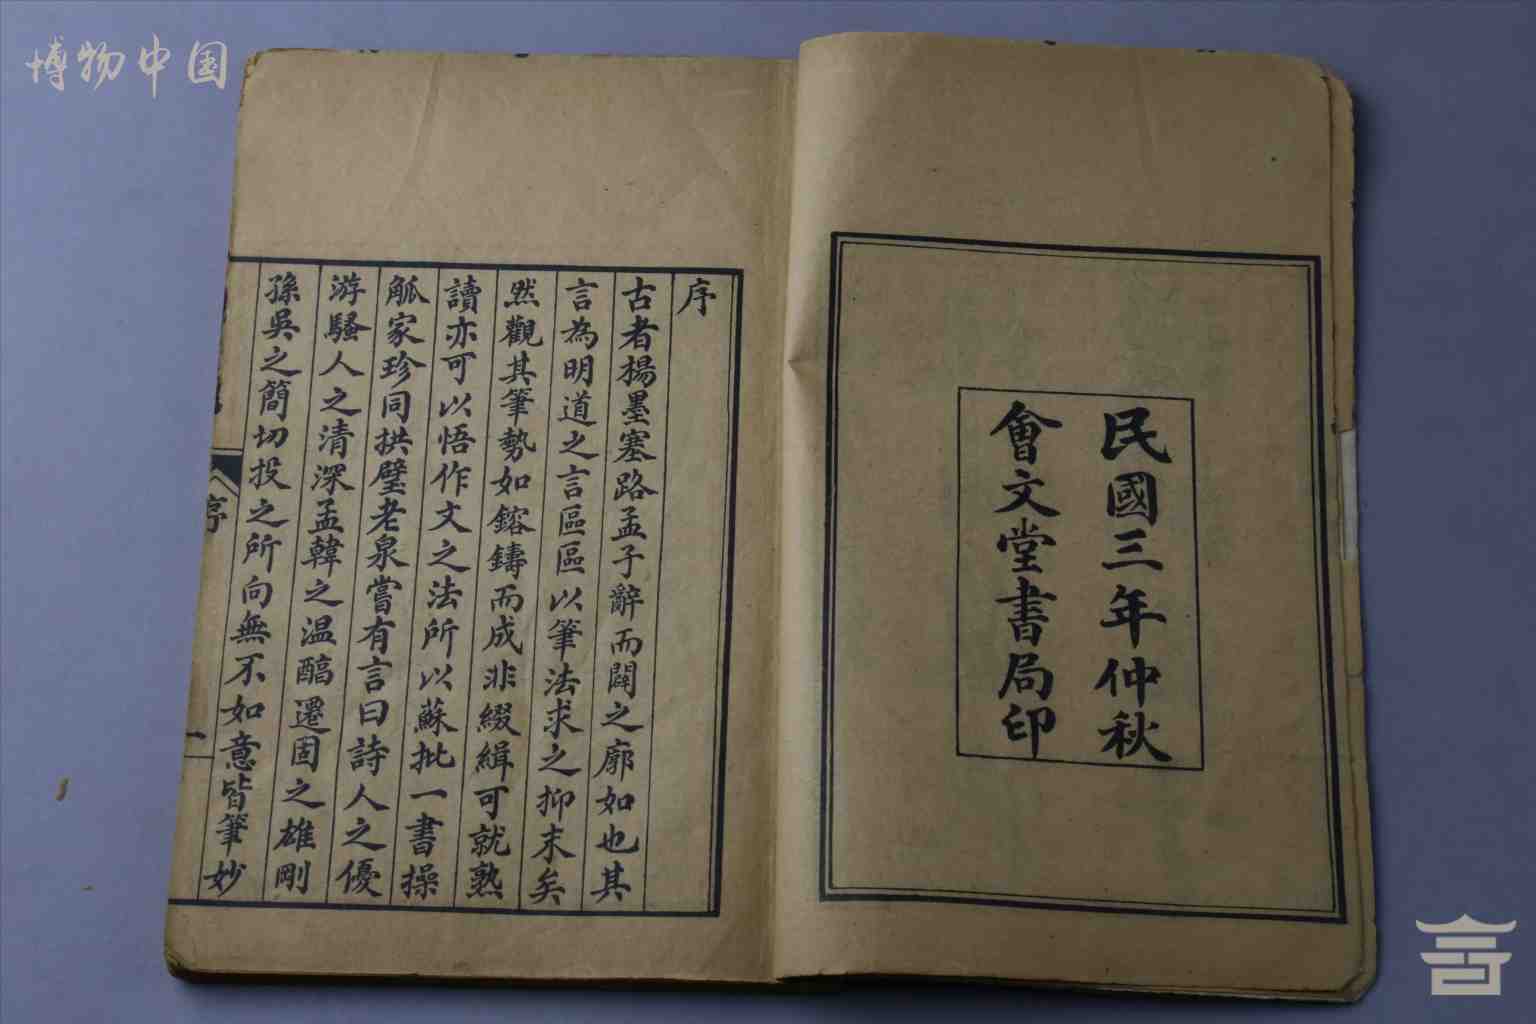 博物中国
民國三年仲秋
會文堂書局印
序
古者楊墨塞路孟子辭而闢之廓如也其
言為明道之言區區以筆法求之抑末矣
然觀其筆勢如鎔鑄而成非綴緝可就熟
讀亦可以悟作文之法所以蘇批一書操
觚家珍同拱璧老泉嘗有言曰詩人之優
游騷人之清深孟韓之温醕遷固之雄剛
孫吳之簡切投之所向無不如意皆筆妙
序
一